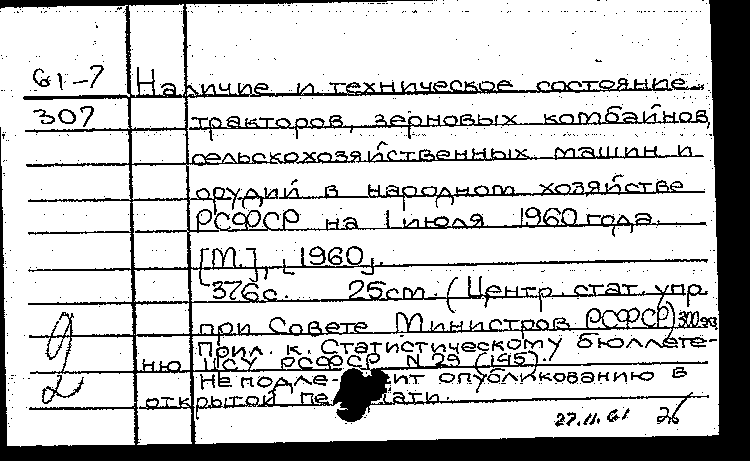 61-7 Наличие и техническое состояние
307 тракторов, зерновых комбайнов,
сельскохозяйственных машин и
орудий в народном хозяйстве
РСФСР на 1 июля 1960 года.
[М.], [1960].
376с. 25см. (Центр. стат. упр.
при Совете Министров РСФСР) 300экз
Прил. к. Статистическому бюллете-
ню ЦСУ РСФСР N 29 (195).
Не подле- жит опубликованию в
открытой печати.
27.11.61